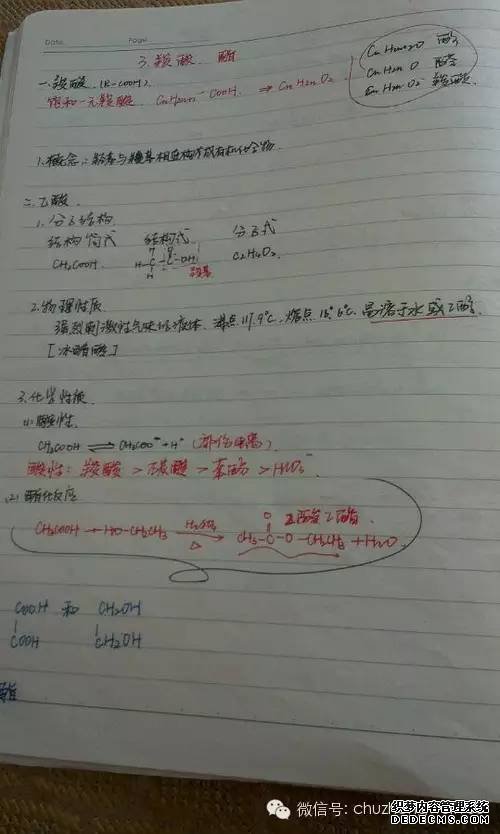 Date. Page.
3. 羧酸 酯
CnH2n+2O 醇
CnH2nO 醛
CnH2nO2 羧酸
一.羧酸 (R-COOH).
饱和一元羧酸 CnH2n+1-COOH. ⇒ CnH2nO2
1.概念:烃基与羧基相连构成有机化合物.
二.乙酸
1.分子结构
结构简式 结构式 分子式
CH3COOH. C2H4O2.
羧基
2.物理性质
强烈刺激性气味的液体. 沸点117.9℃. 熔点16.6℃. 易溶于水或乙醇.
[冰醋酸]
3.化学性质
(1)酸性.
CH3COOH ⇌ CH3COO⁻+H⁺(部分电离)
酸性: 羧酸 > 碳酸 > 苯酚 > HCO3⁻
(2)酯化反应
CH3COOH + HO-CH2CH3 H2SO4 △ → CH3-C-O-CH2CH3 + H2O
O 乙酸乙酯.
COOH 和 CH2OH
COOH CH2OH
酯
微信号: chuzh
织梦内容管理系统
DEDECMS.COM